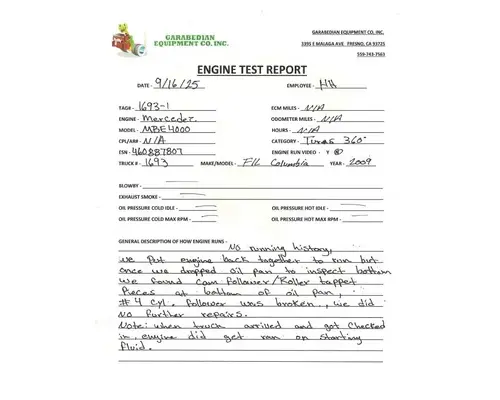 GARABEDIAN
EQUIPMENT CO, INC.
GARABEDIAN EQUIPMENT CO, INC.
3395 E MALAGA AVE FRESNO, CA 93725
559-743-7561
ENGINE TEST REPORT
DATE - 9/16/25 EMPLOYEE - HH
TAG# - 1693-1 ECM MILES - N/A
ENGINE - Mercedes. ODOMETER MILES - N/A
MODEL - MBE4000 HOURS - N/A
CPL/AR# - N/A CATEGORY - Texas 360°
ESN - 460887807 ENGINE RUN VIDEO - Y N
TRUCK # - 1693 MAKE/MODEL - F/L Columbia YEAR - 2009
BLOWBY -
EXHAUST SMOKE -
OIL PRESSURE COLD IDLE - OIL PRESSURE HOT IDLE -
OIL PRESSURE COLD MAX RPM - OIL PRESSURE HOT MAX RPM -
GENERAL DESCRIPTION OF HOW ENGINE RUNS - No running history,
we put engine back together to run but
once we dropped oil pan to inspect bottom
we found cam follower/Roller tappet
pieces at bottom of oil pan,
#4 cyl. follower was broken, we did
no further repairs.
Note: when truck arrived and got checked
in, engine did get ran on starting
fluid.